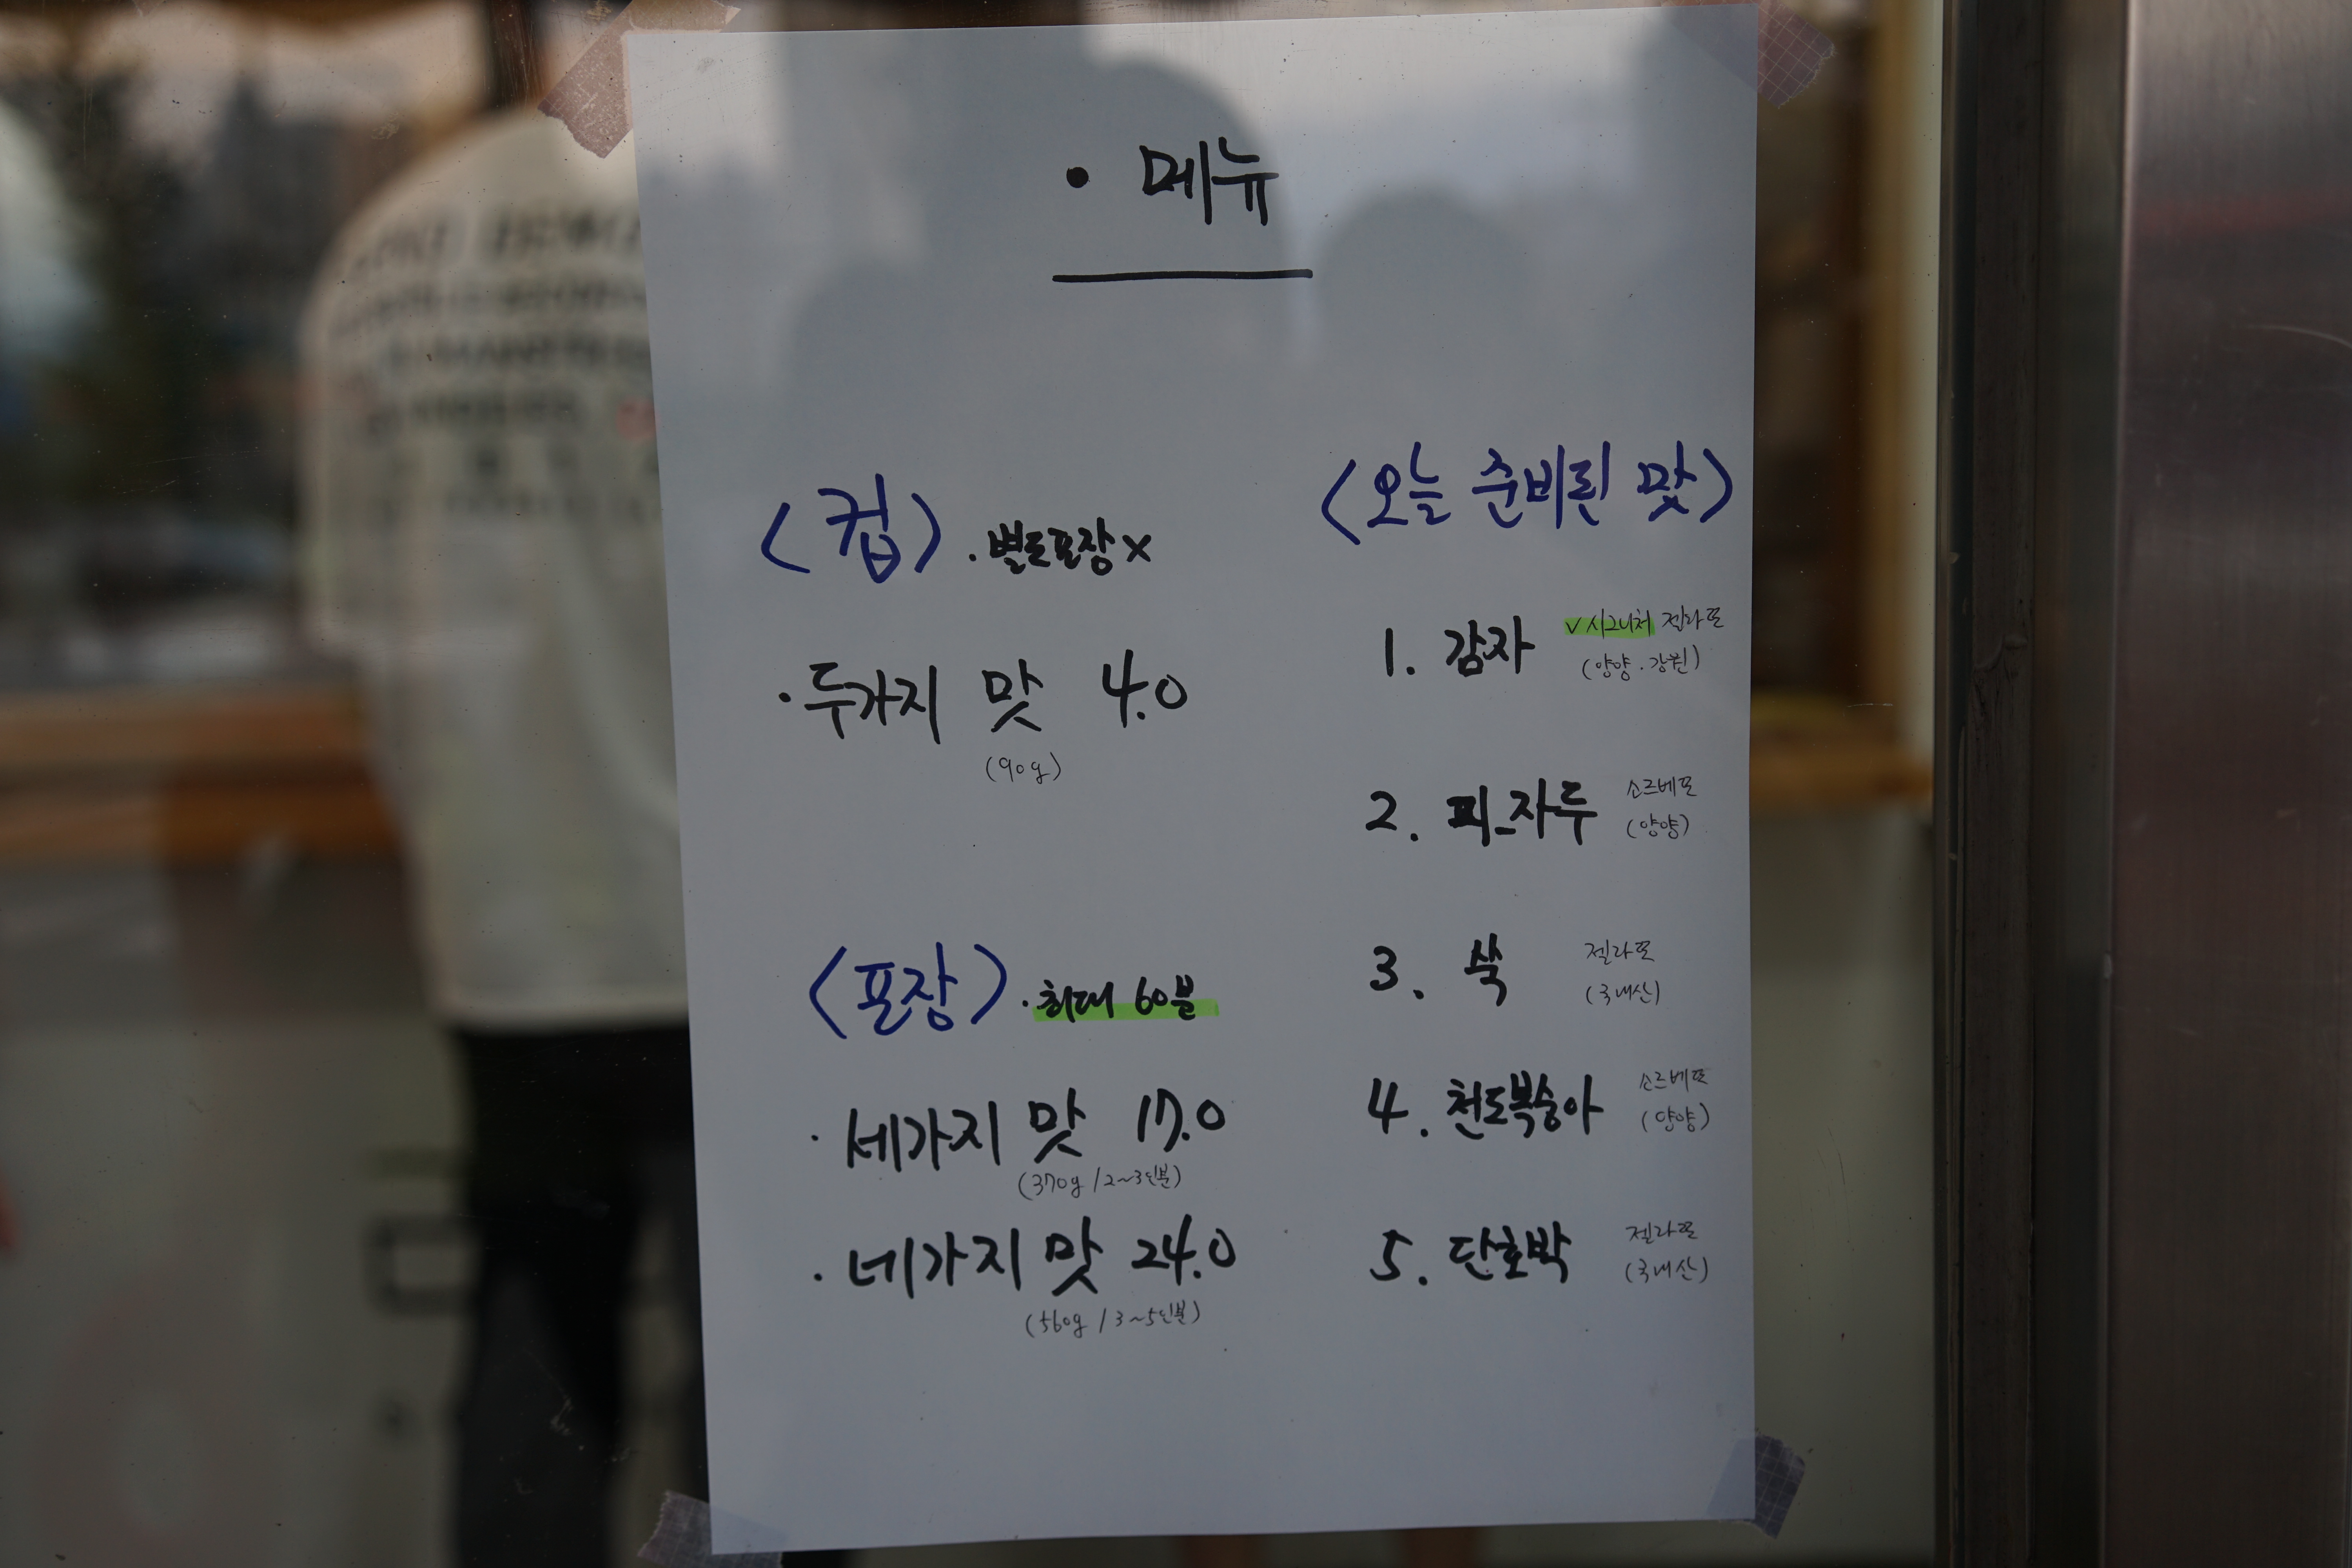 • 메뉴
<컵> · 별도포장 x
· 두가지 맛 4.0
(90g)
<포장> · 최대 60분
· 세가지 맛 17.0
(370g / 2~3인분)
· 네가지 맛 24.0
(560g / 3~5인분)
<오늘 준비된 맛>
1. 감자 v 시그니처 젤라또
(양양 · 강원)
2. 피_자두 소르베또
(양양)
3. 쑥 젤라또
(국내산)
4. 천도복숭아 소르베또
(양양)
5. 단호박 젤라또
(국내산)